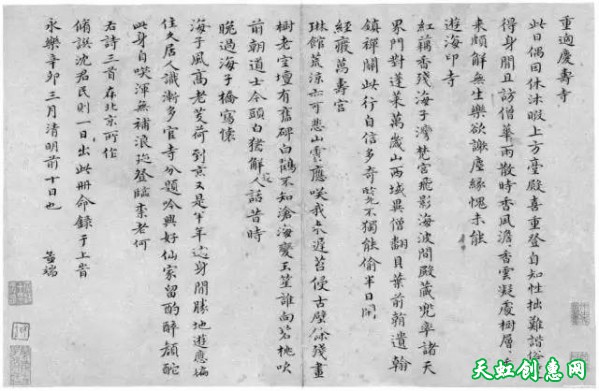 重過慶壽寺
此日偶因休沐暇上方臺殿喜重登自知性拙難諧俗
得身閒且訪僧華雨散時香風澹香雲凝處樹層
來頗解無生樂欲謝塵緣愧未能
遊海印寺
紅藕香殘海子灣梵宮飛影海波間殿藏兜率諸天
界門對蓬萊萬歲山西域異僧翻貝葉前朝遺翰
鎮禪關此行自信多奇覽不獨能偷半日閒
經廢萬壽宮
琳館荒涼亦可悲山靈應笑我來遲苔侵古壁餘殘畫
樹老空壇有舊碑白鶴不知滄海變玉笙誰向碧桃吹
前朝道士今頭白猶解人話昔時
晚過海子橋寫懷
海子風高老芰荷到京又是半年過身閒勝地遊應遍
住久居人識漸多官寺分題吟興好仙家留酌醉顏酡
此身自笑渾無補浪跡登臨柰老何
右詩三首在北京所作
脩譔沈君民則一日出此冊命錄于上當
永樂辛卯三月清明前十日也 孟端
天虹创惠网
www.tianhong365.com